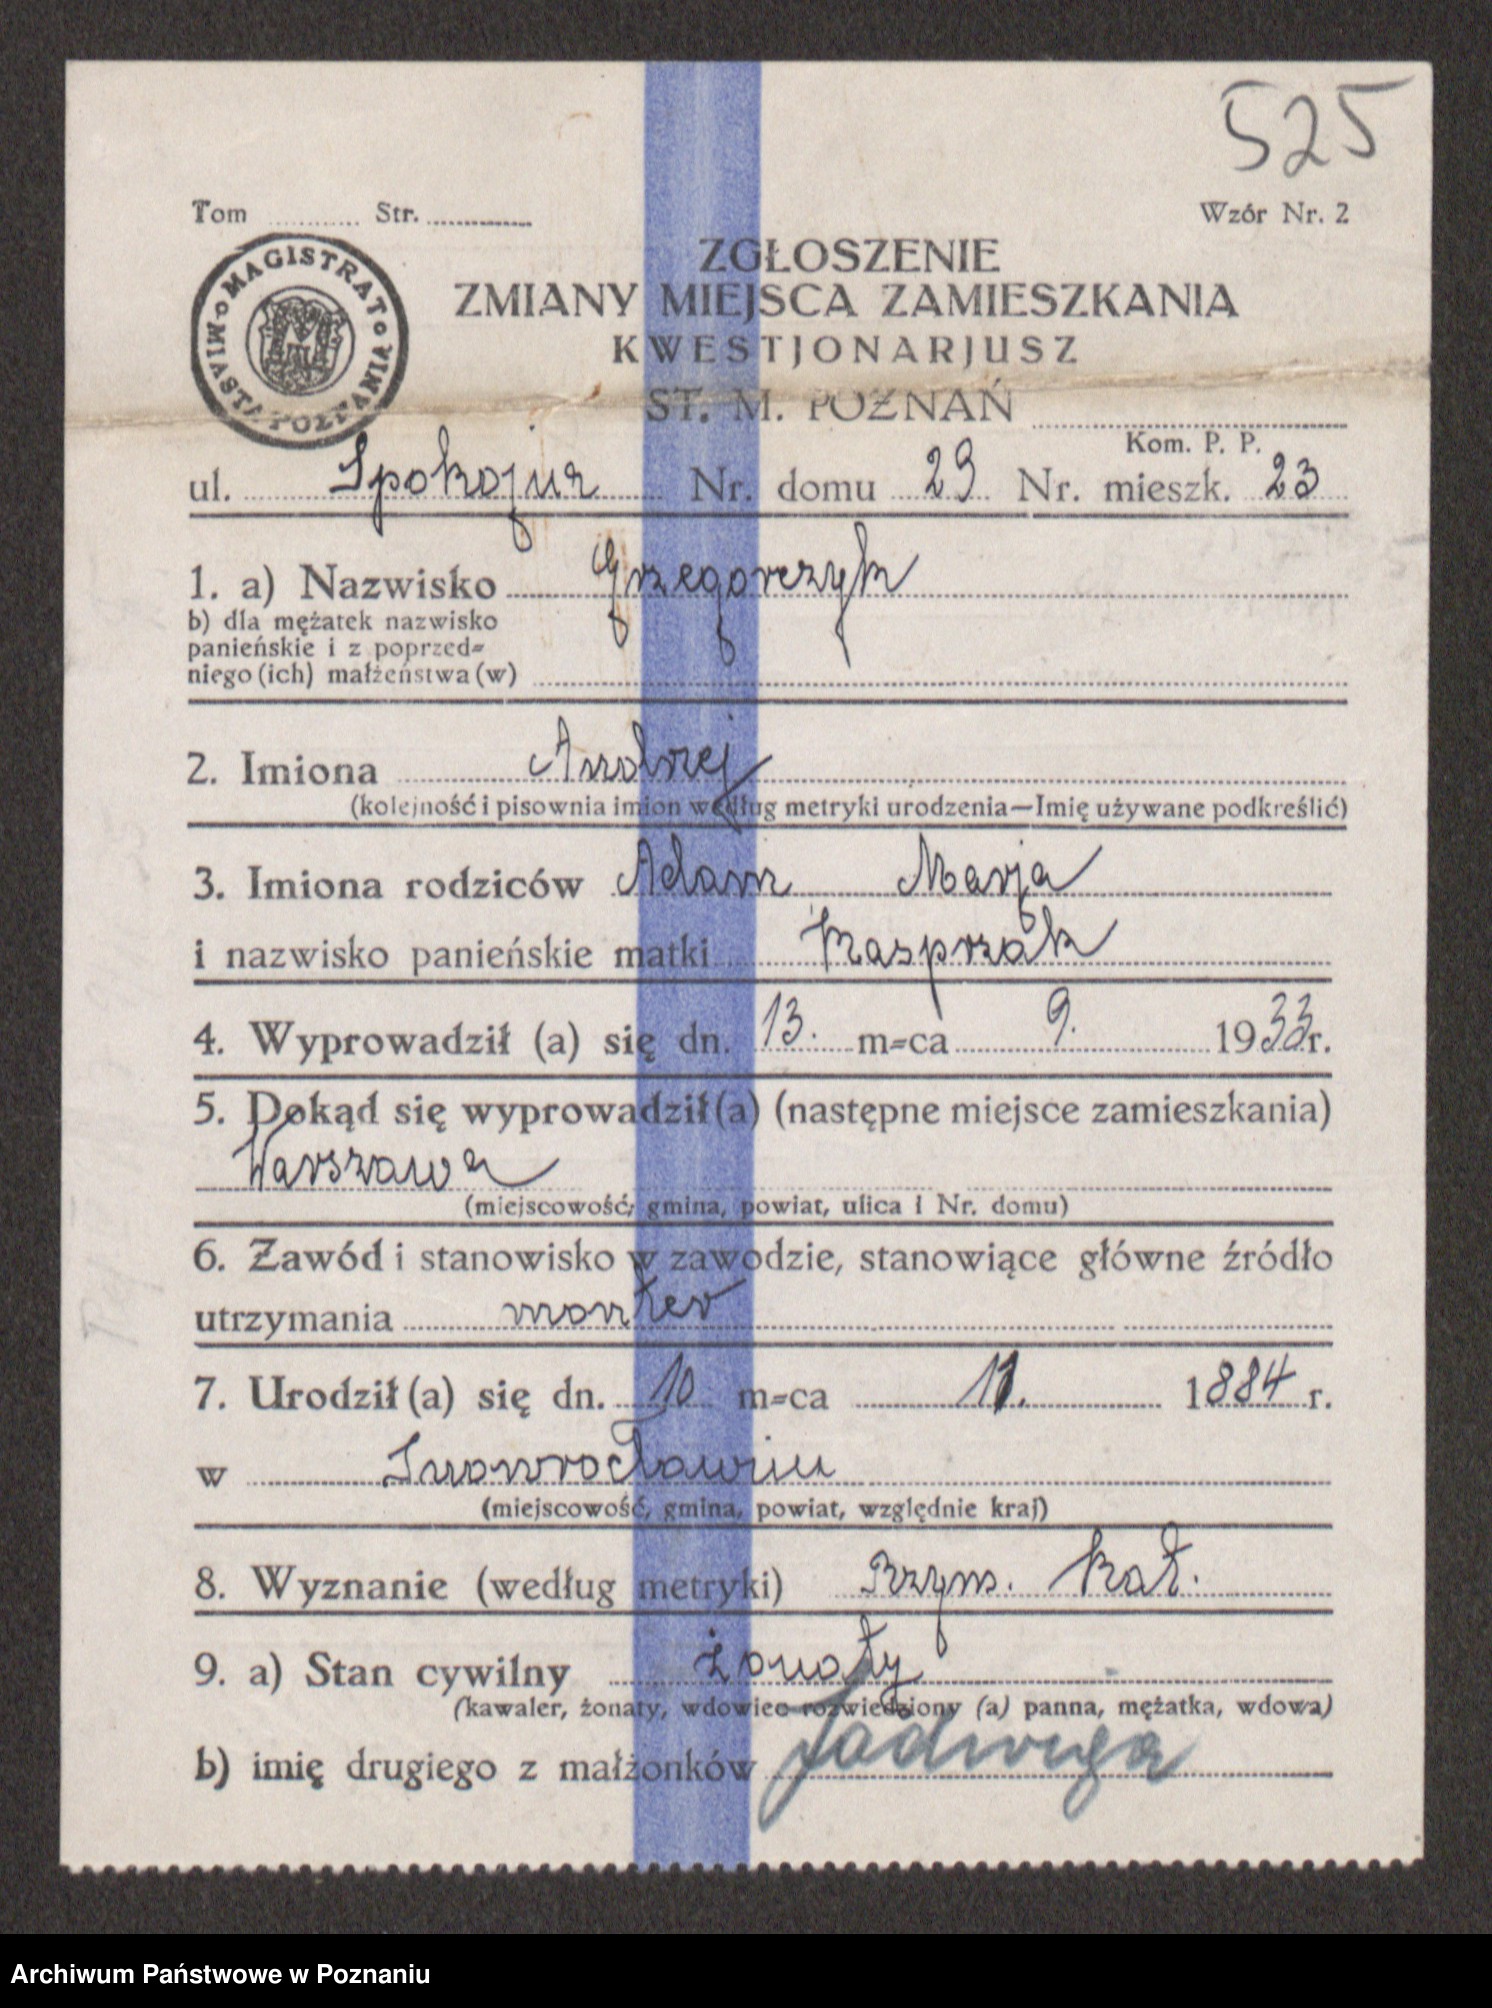 525
Tom ............ Str. ............... Wzór Nr. 2
ZGŁOSZENIE
ZMIANY MIEJSCA ZAMIESZKANIA
KWESTJONARJUSZ
ST. M. POZNAŃ
MAGISTRAT MIASTA POZNANIA
Kom. P. P.
ul. Spokojna Nr. domu 29 Nr. mieszk. 23
1. a) Nazwisko Grzegorczyk
b) dla mężatek nazwisko
panieńskie i z poprzed=
niego (ich) małżeństwa (w)
2. Imiona Andrzej
(kolejność i pisownia imion według metryki urodzenia—Imię używane podkreślić)
3. Imiona rodziców Adam Marja
i nazwisko panieńskie matki Kasprzak
4. Wyprowadził (a) się dn. 13. m=ca 9. 1933 r.
5. Dokąd się wyprowadził (a) (następne miejsce zamieszkania)
Warszawa
(miejscowość, gmina, powiat, ulica i Nr. domu)
6. Zawód i stanowisko w zawodzie, stanowiące główne źródło
utrzymania monter
7. Urodził (a) się dn. 10 m=ca 11. 1884 r.
w Inowrocławiu
(miejscowość, gmina, powiat, względnie kraj)
8. Wyznanie (według metryki) Rzym. Kat.
9. a) Stan cywilny żonaty
(kawaler, żonaty, wdowiec rozwiedziony (a) panna, mężatka, wdowa)
b) imię drugiego z małżonków Jadwiga
Archiwum Państwowe w Poznaniu